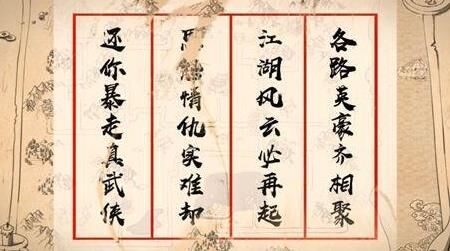 各路英豪齐相聚
江湖风云必再起
情仇实难却
还你暴走真武侠